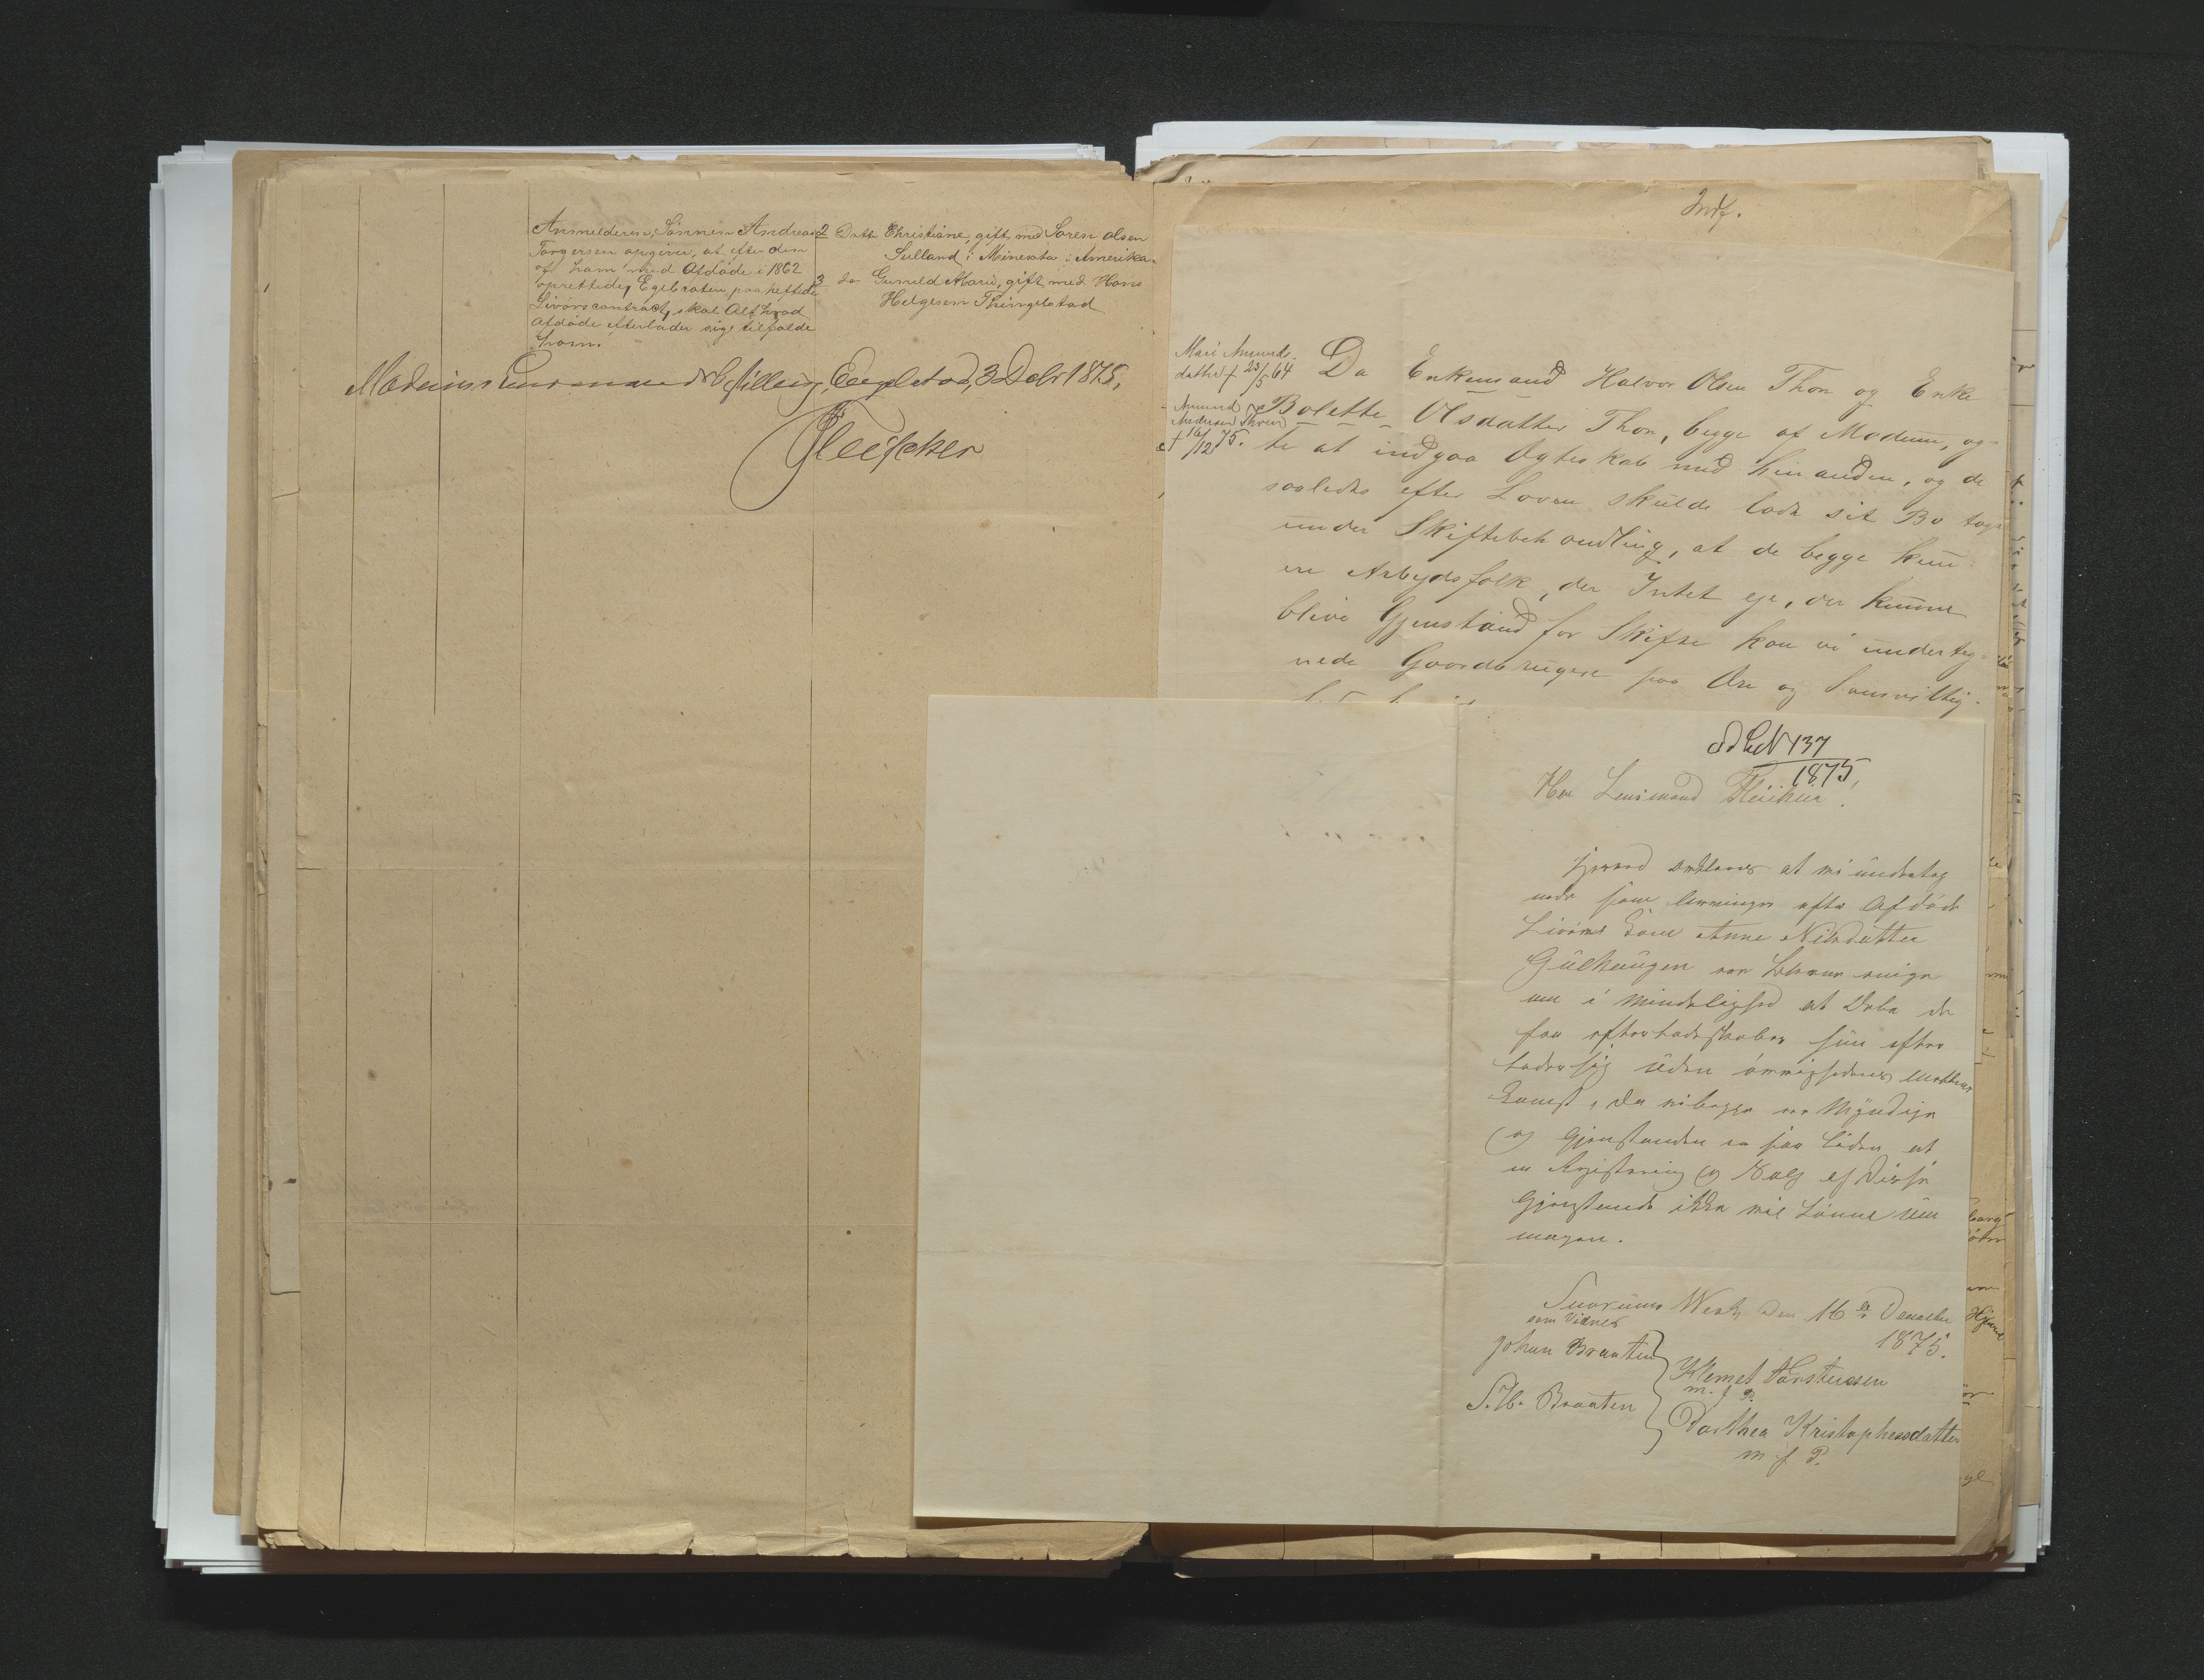 Anmelderen, Sønnen Andreas
Torgersen opgiver, at efter den
af ham med Afdøde i 1862
oprettede, Egebraten paaheftede
Livørscontract, skal Alt hvad
Afdøde efterlader sig, tilfalde
ham.
2 Datter Christiane, gift med Søren Olsen
Sulland i Minesota i Amerika.
3 do Gunild Marie, gift med Hans
Helgesen Thingelstad
Modums Lensmandsbestilling, 3 Decbr 1875,
Fleischer
Indf.
Mari Amunds-
datter † 23/5 64
Amund
Andersen Thon
† 16/12 75.
Da Enkemand Halvor Olsen Thon og Enke
Bolette Olsdatter Thon, begge af Modum, ag-
te at indgaa Ægteskab med hinanden, og de
saaledes efter Loven skulde lade sit Bo tages
under Skiftebehandling, at de begge kun
ere Arbejdsfolk, der Intet eje, der kunne
blive Gjenstand for Skifte kan vi underteg-
nede Gaardbrugere paa Ære og Samvittig-
No 137
1875,
Herr Lensmand Fleischer.
Herved erklæres at vi underteg
nede som Arvinger efter Afdøde
Livøre Kone Anne Nilsdatter
Gulhaugen er blevne enige
om i Mindelighed at dele de
faa efterladenskaber hun efter
lader sig uden øvrighedens mellem
komst, da vi begge er Myndige
og Gjenstanden er saa liden at
en Registrering og Salg af disse
Gjenstande ikke vil lønne um
magen.
Snarums Werk den 16de December
1875.
som Vidner
Johan Braaten
S. H. Braaten
Klemet Torstensen
m. f. P.
Dorthea Kristophersdatter
m f P.